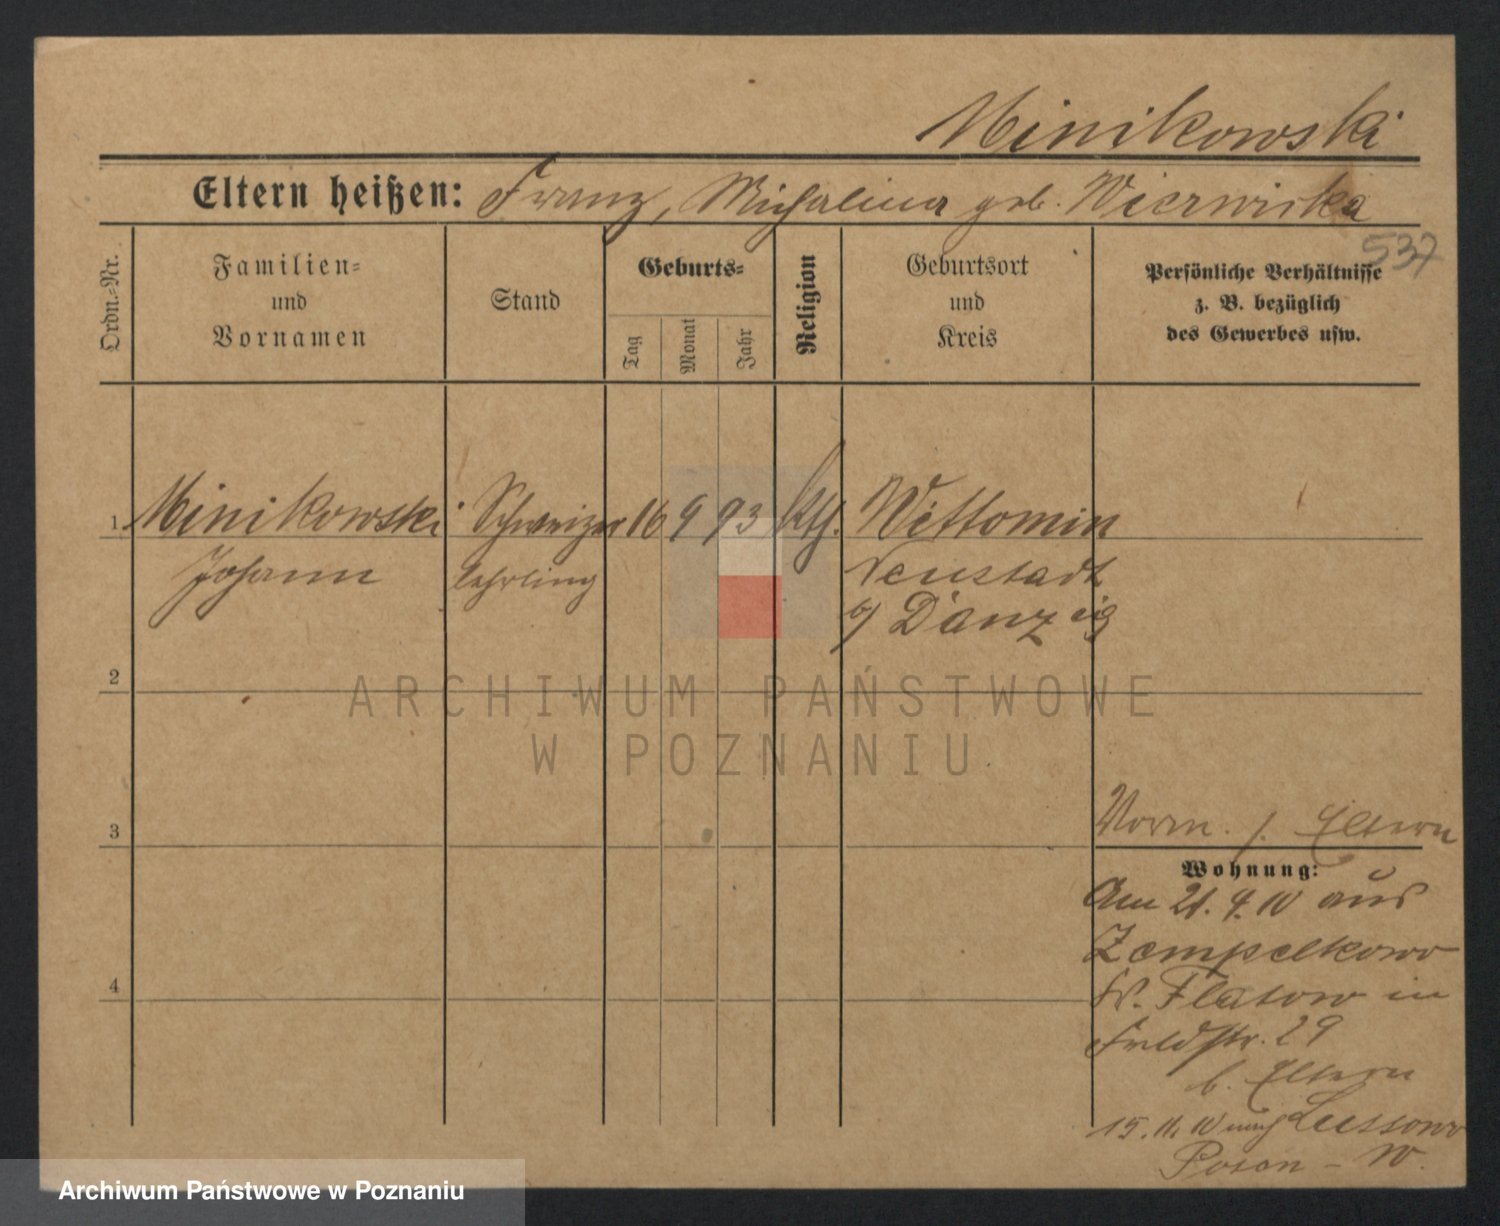 Minikowski
Eltern heißen: Franz, Michalina geb. Wierwiska
537
Ordn.-Nr.
Familien-
und
Vornamen
Stand
Geburts-
Tag
Monat
Jahr
Religion
Geburtsort
und
Kreis
Persönliche Verhältnisse
z. B. bezüglich
des Gewerbes usw.
1 Minikowski Schweizer 16 9 93 kth. Wittomin
Johann lehrling Neustadt
b/ Danzig
2
ARCHIWUM PAŃSTWOWE
W POZNANIU
3
Vorm. s. Eltern
Wohnung:
Am 21. 4. 10 aus
Zempelkowo
Kr. Flatow in
Feldstr. 29
4
b. Eltern
15. 11. 10 nach Lussowo
Posen - W.
Archiwum Państwowe w Poznaniu